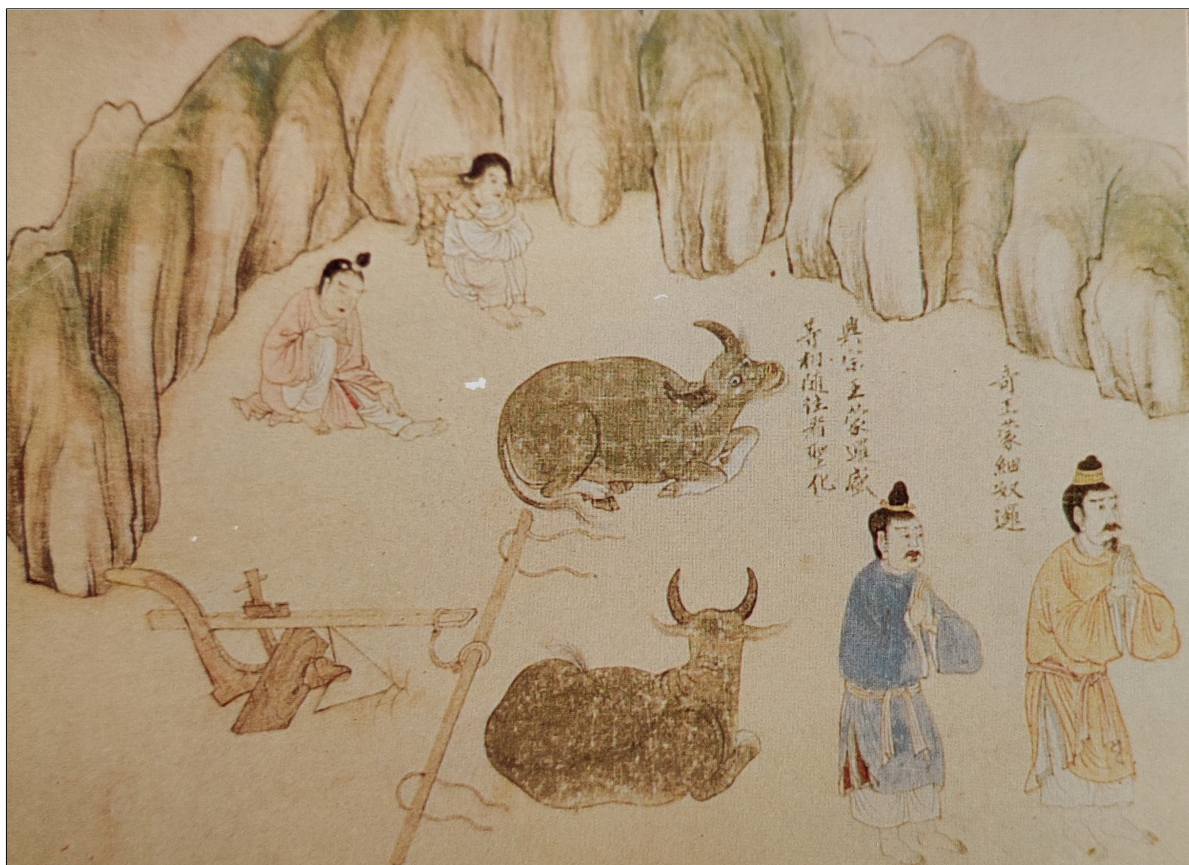 奇王蒙細奴邏
興宗王蒙邏盛
等相隨往看聖化